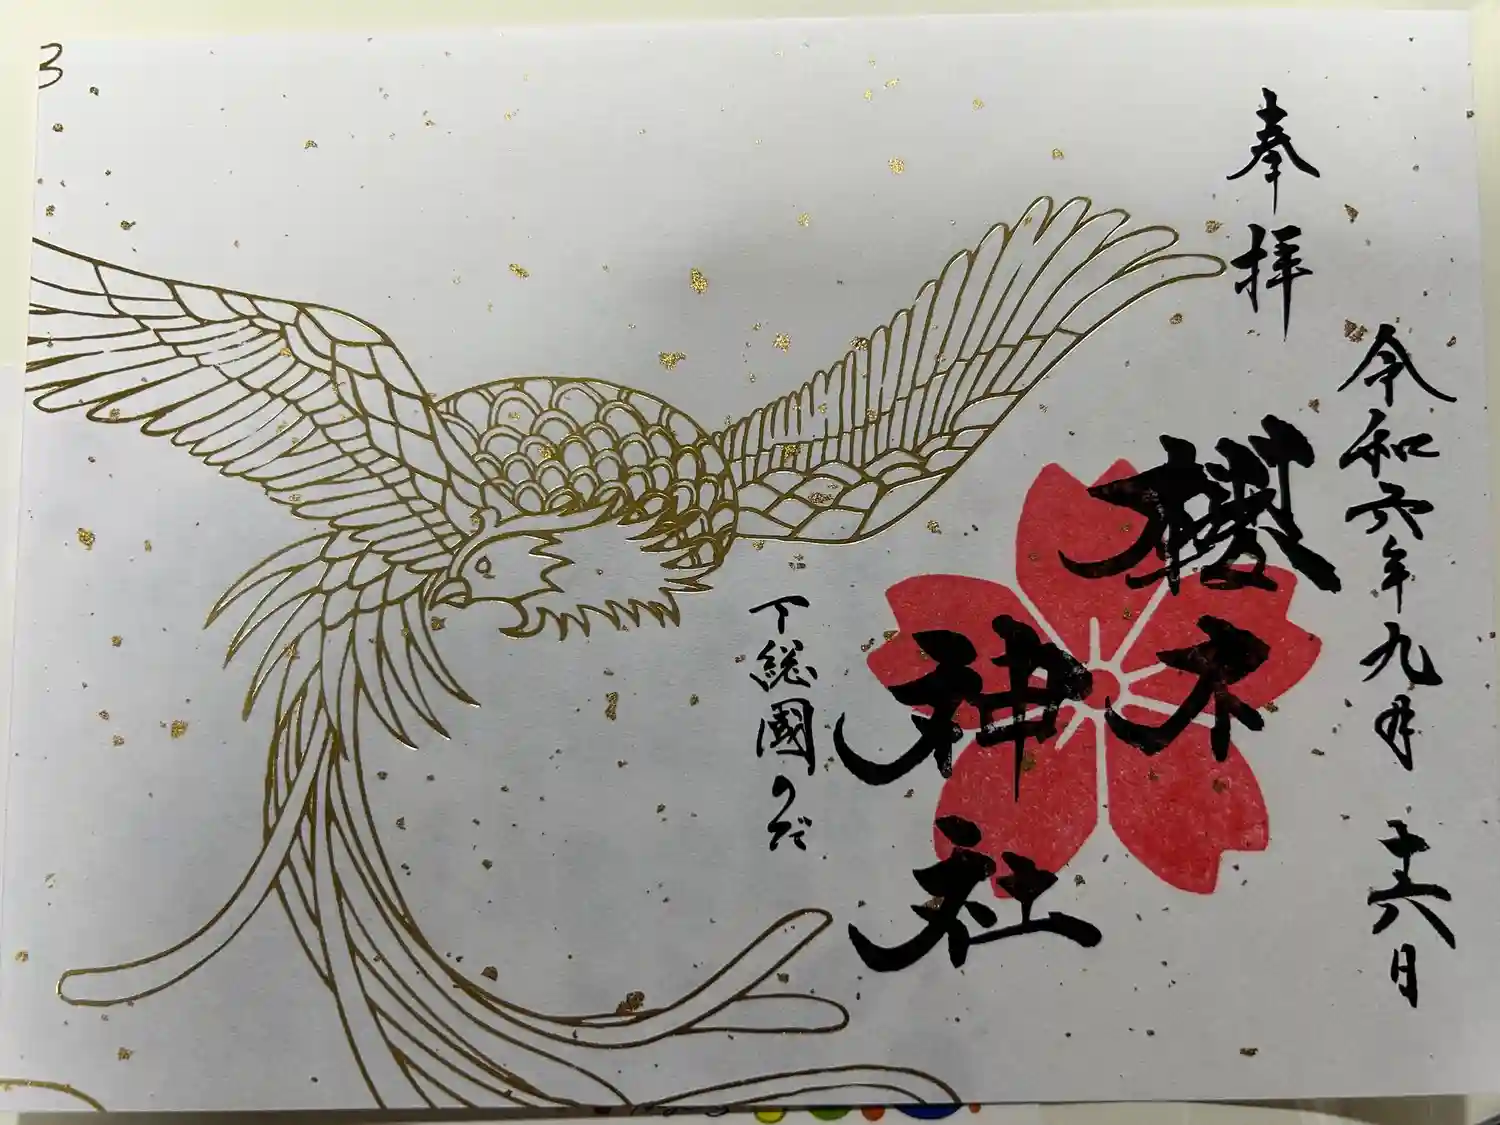 奉拝
令和六年九月十六日
櫻木
神社
下総國のだ
3